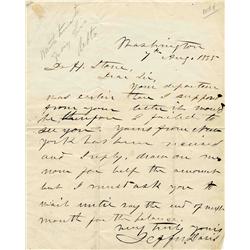 Washington
7th Aug. 1855
Dr. H. Stone,
Dear Sir,
Your departure
was earlier than I supposed
from your letter it would
be therefore I failed to
see you. Yours from New
York has been received
and I reply, draw on
me for half the amount
but I must ask you to
wait until say the end of next
month for the balance.
Very truly yours
Jeffn. Davis